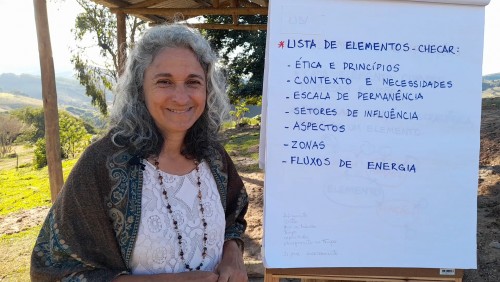 * LISTA DE ELEMENTOS - CHECAR:
- ÉTICA E PRINCÍPIOS
- CONTEXTO E NECESSIDADES
- ESCALA DE PERMANÊNCIA
- SETORES DE INFLUÊNCIA
- ASPECTOS
- ZONAS
- FLUXOS DE ENERGIA